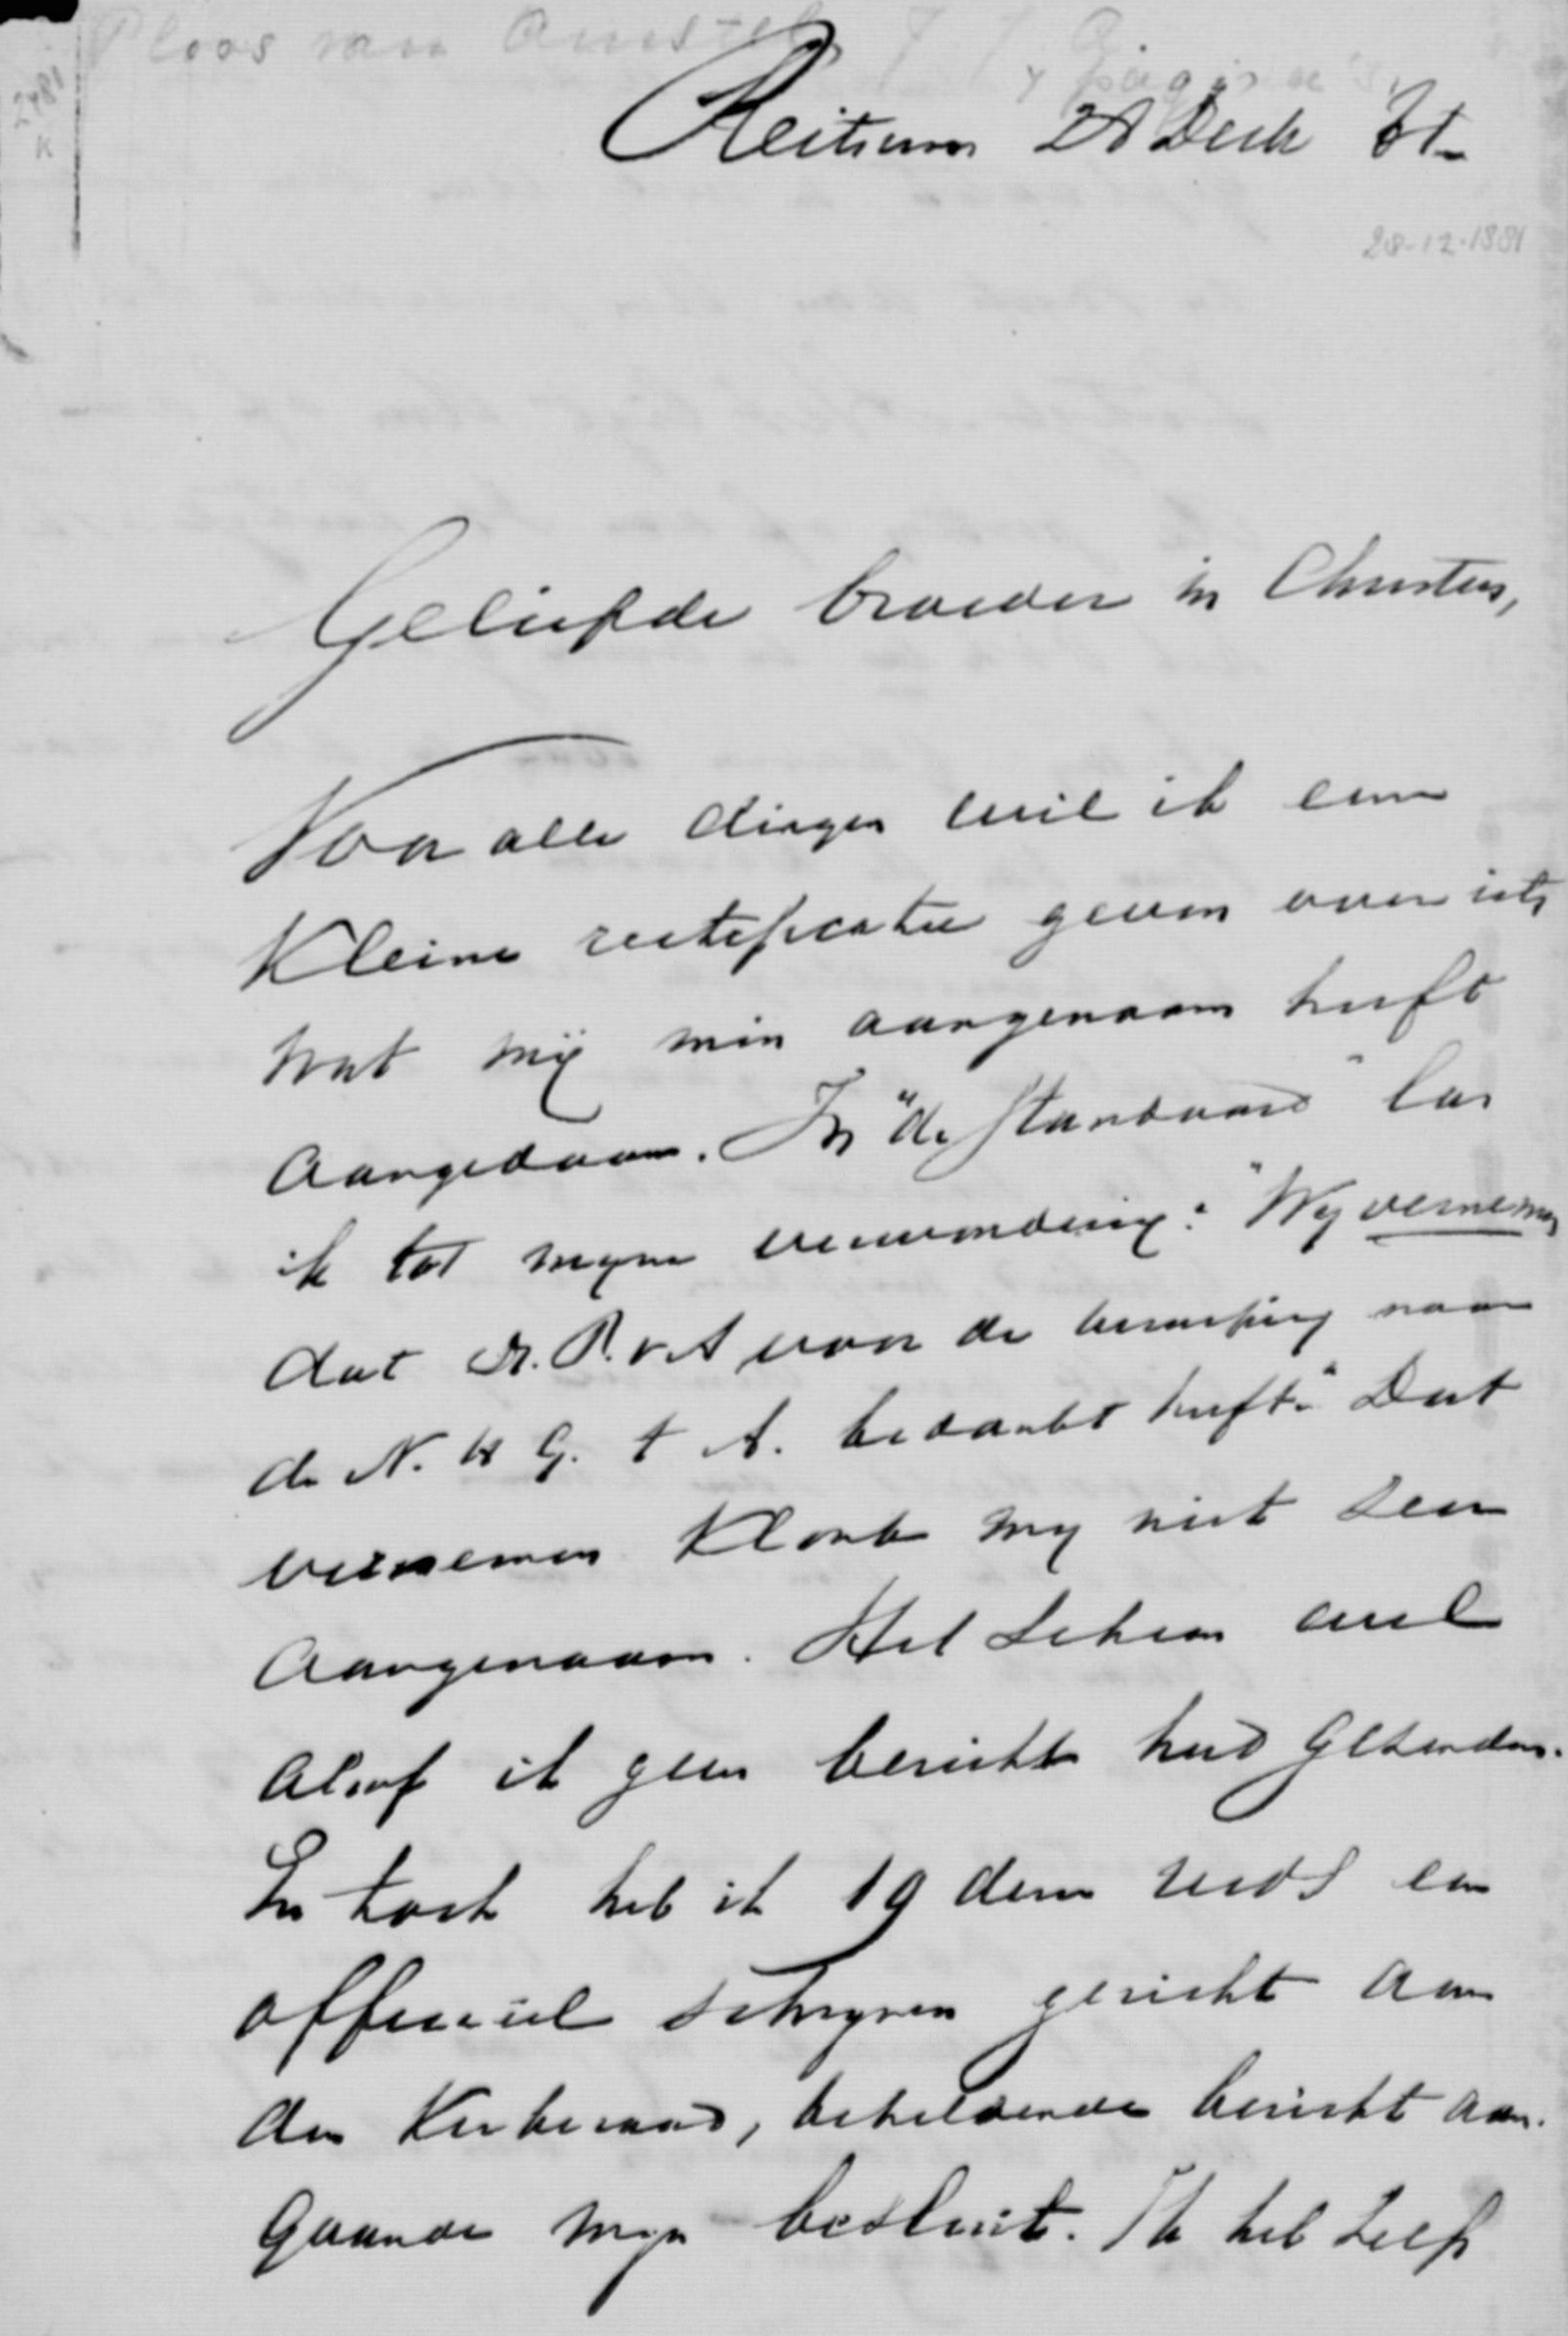 Ploos van Amstel
Reitsum 28 Dec 81
28-12-1881
Geliefde broeder in Christus,
Voor alle dingen wil ik eene
kleine rectificatie geven over iets
wat mij min aangenaam heeft
aangedaan. In "de Standaard" las
ik tot mijne verwondering: "Wij vernemen
dat Dr. P. v A voor de beroeping naar
de N. H G. t A. bedankt heeft." Dat
vernemen klonk mij niet zeer
aangenaam. Het scheen wel
alsof ik geen bericht had gezonden.
En toch heb ik 19 dezer reeds een
officieel schrijven gericht aan
den Kerkeraad, behelzende bericht aan-
gaande mijn besluit. Ik heb zelfs